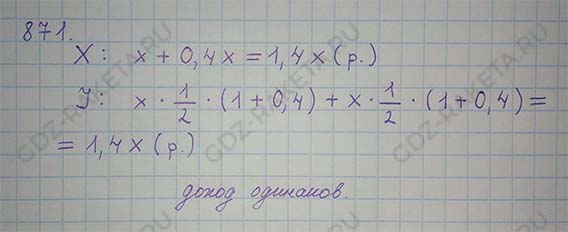 871.
X: x + 0,4x = 1,4x (р.)
У: x · 1/2 · (1 + 0,4) + x · 1/2 · (1 + 0,4) =
= 1,4x (р.)
доход одинаков.
GDZ-RAKETA.RU